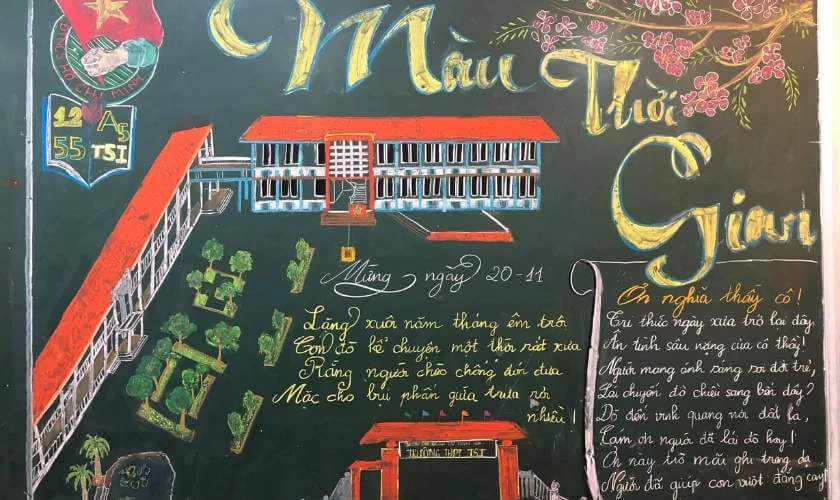 Màu
Thời
Gian
HỒ CHÍ MINH
12 A5
55 TSI
Mừng ngày 20-11
Lặng xuôi năm tháng êm trôi
Con đò kể chuyện một thời rất xưa
Rằng người chèo chống đón đưa
Mặc cho bụi phấn giữa trưa rơi
nhiều!
TRƯỜNG THPT TSI
Ơn nghĩa thầy cô!
Tri thức ngày xưa trở lại đây,
Ân tình sâu nặng của cô thầy!
Người mang ánh sáng soi đời trẻ,
Lái chuyến đò chiều sang bến đây?
Đò đến vinh quang nơi đất lạ,
Cám ơn người đã lái đò hay!
Ơn này trò mãi ghi trong dạ
Người đã giúp con vượt đắng cay!